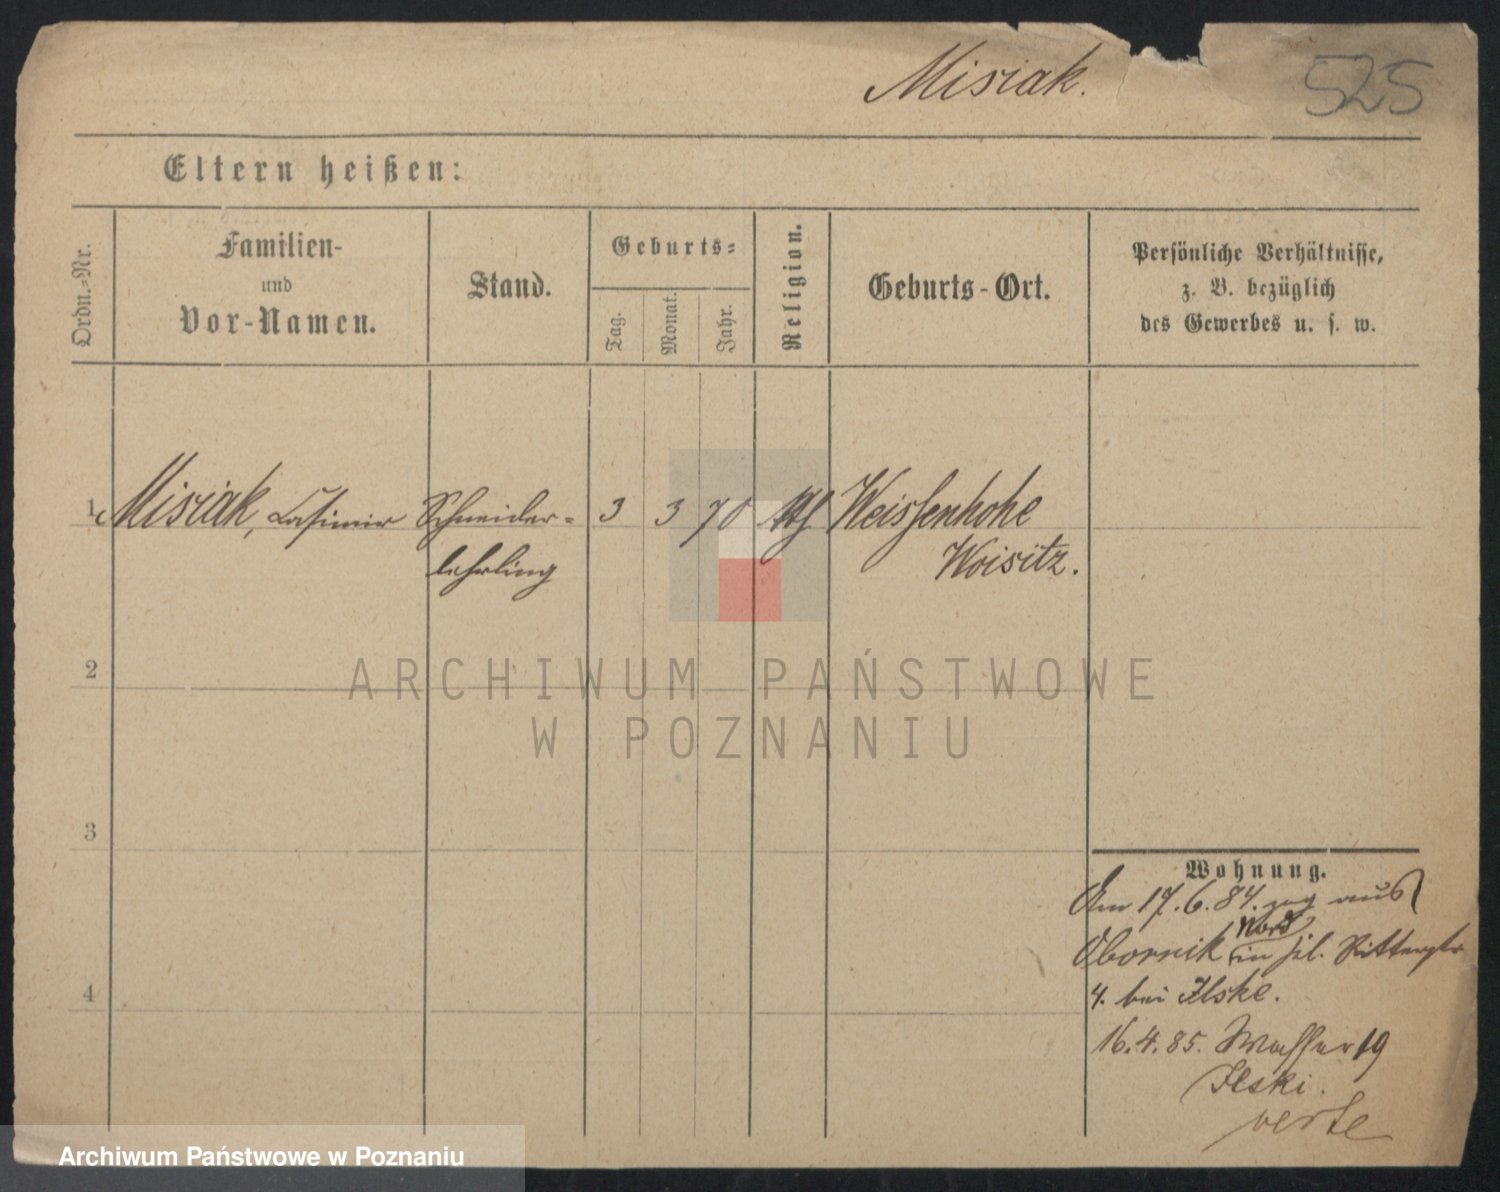 Misiak. 525
Eltern heißen:
Ordn.-Nr.
Familien-
und
Vor-Namen.
Stand.
Geburts-
Tag.
Monat.
Jahr.
Religion.
Geburts-Ort.
Persönliche Verhältnisse,
z. B. bezüglich
des Gewerbes u. s. w.
1 Misiak, Casimir Schneider- 3 3 70 kth Weissenhohe
lehrling Woisitz.
2
3
4
Wohnung.
Am 17.6.84. zog aus
Nord
Obornik in
4. bei Ilske.
16.4.85. Wasser 19
Ilski.
verte
ARCHIWUM PAŃSTWOWE
W POZNANIU
Archiwum Państwowe w Poznaniu